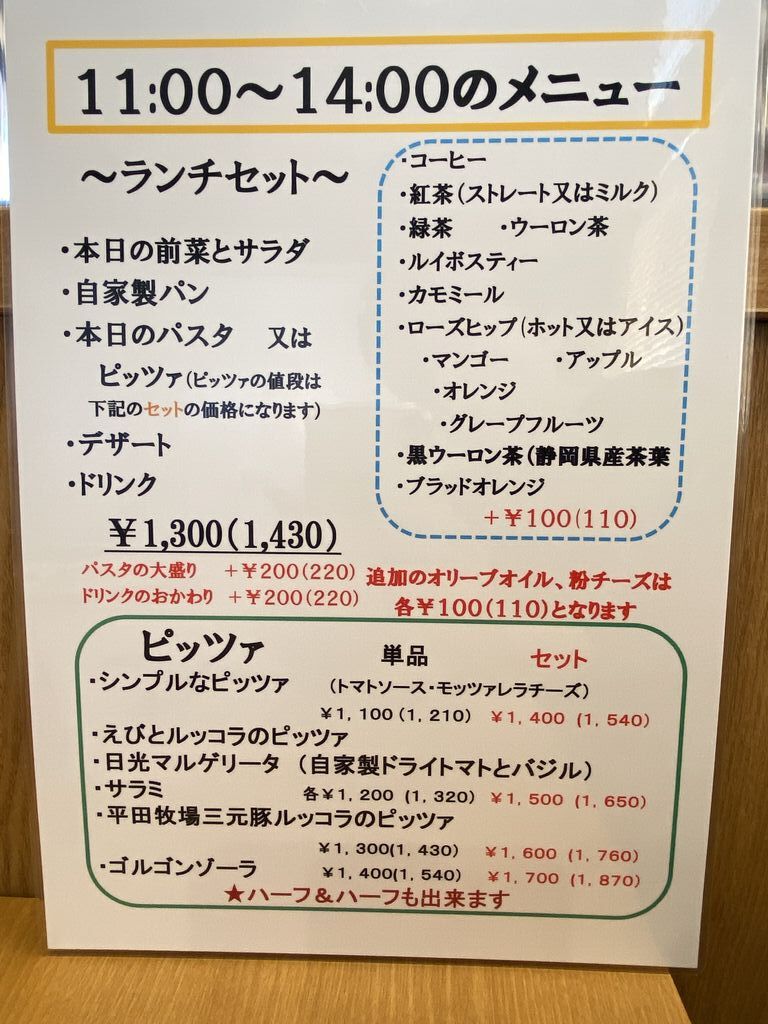 11:00～14:00のメニュー
～ランチセット～
・本日の前菜とサラダ
・自家製パン
・本日のパスタ 又は
ピッツァ(ピッツァの値段は
下記のセットの価格になります)
・デザート
・ドリンク
￥1,300(1,430)
パスタの大盛り ＋￥200(220)
ドリンクのおかわり ＋￥200(220)
・コーヒー
・紅茶(ストレート又はミルク)
・緑茶 ・ウーロン茶
・ルイボスティー
・カモミール
・ローズヒップ(ホット又はアイス)
・マンゴー ・アップル
・オレンジ
・グレープフルーツ
・黒ウーロン茶(静岡県産茶葉
・ブラッドオレンジ
＋￥100(110)
追加のオリーブオイル、粉チーズは
各￥100(110)となります
ピッツァ 単品 セット
・シンプルなピッツァ (トマトソース・モッツァレラチーズ)
￥1,100(1,210) ￥1,400 (1,540)
・えびとルッコラのピッツァ
・日光マルゲリータ (自家製ドライトマトとバジル)
・サラミ 各￥1,200 (1,320) ￥1,500 (1,650)
・平田牧場三元豚ルッコラのピッツァ
￥1,300(1,430) ￥1,600 (1,760)
・ゴルゴンゾーラ ￥1,400(1,540) ￥1,700 (1,870)
★ハーフ＆ハーフも出来ます